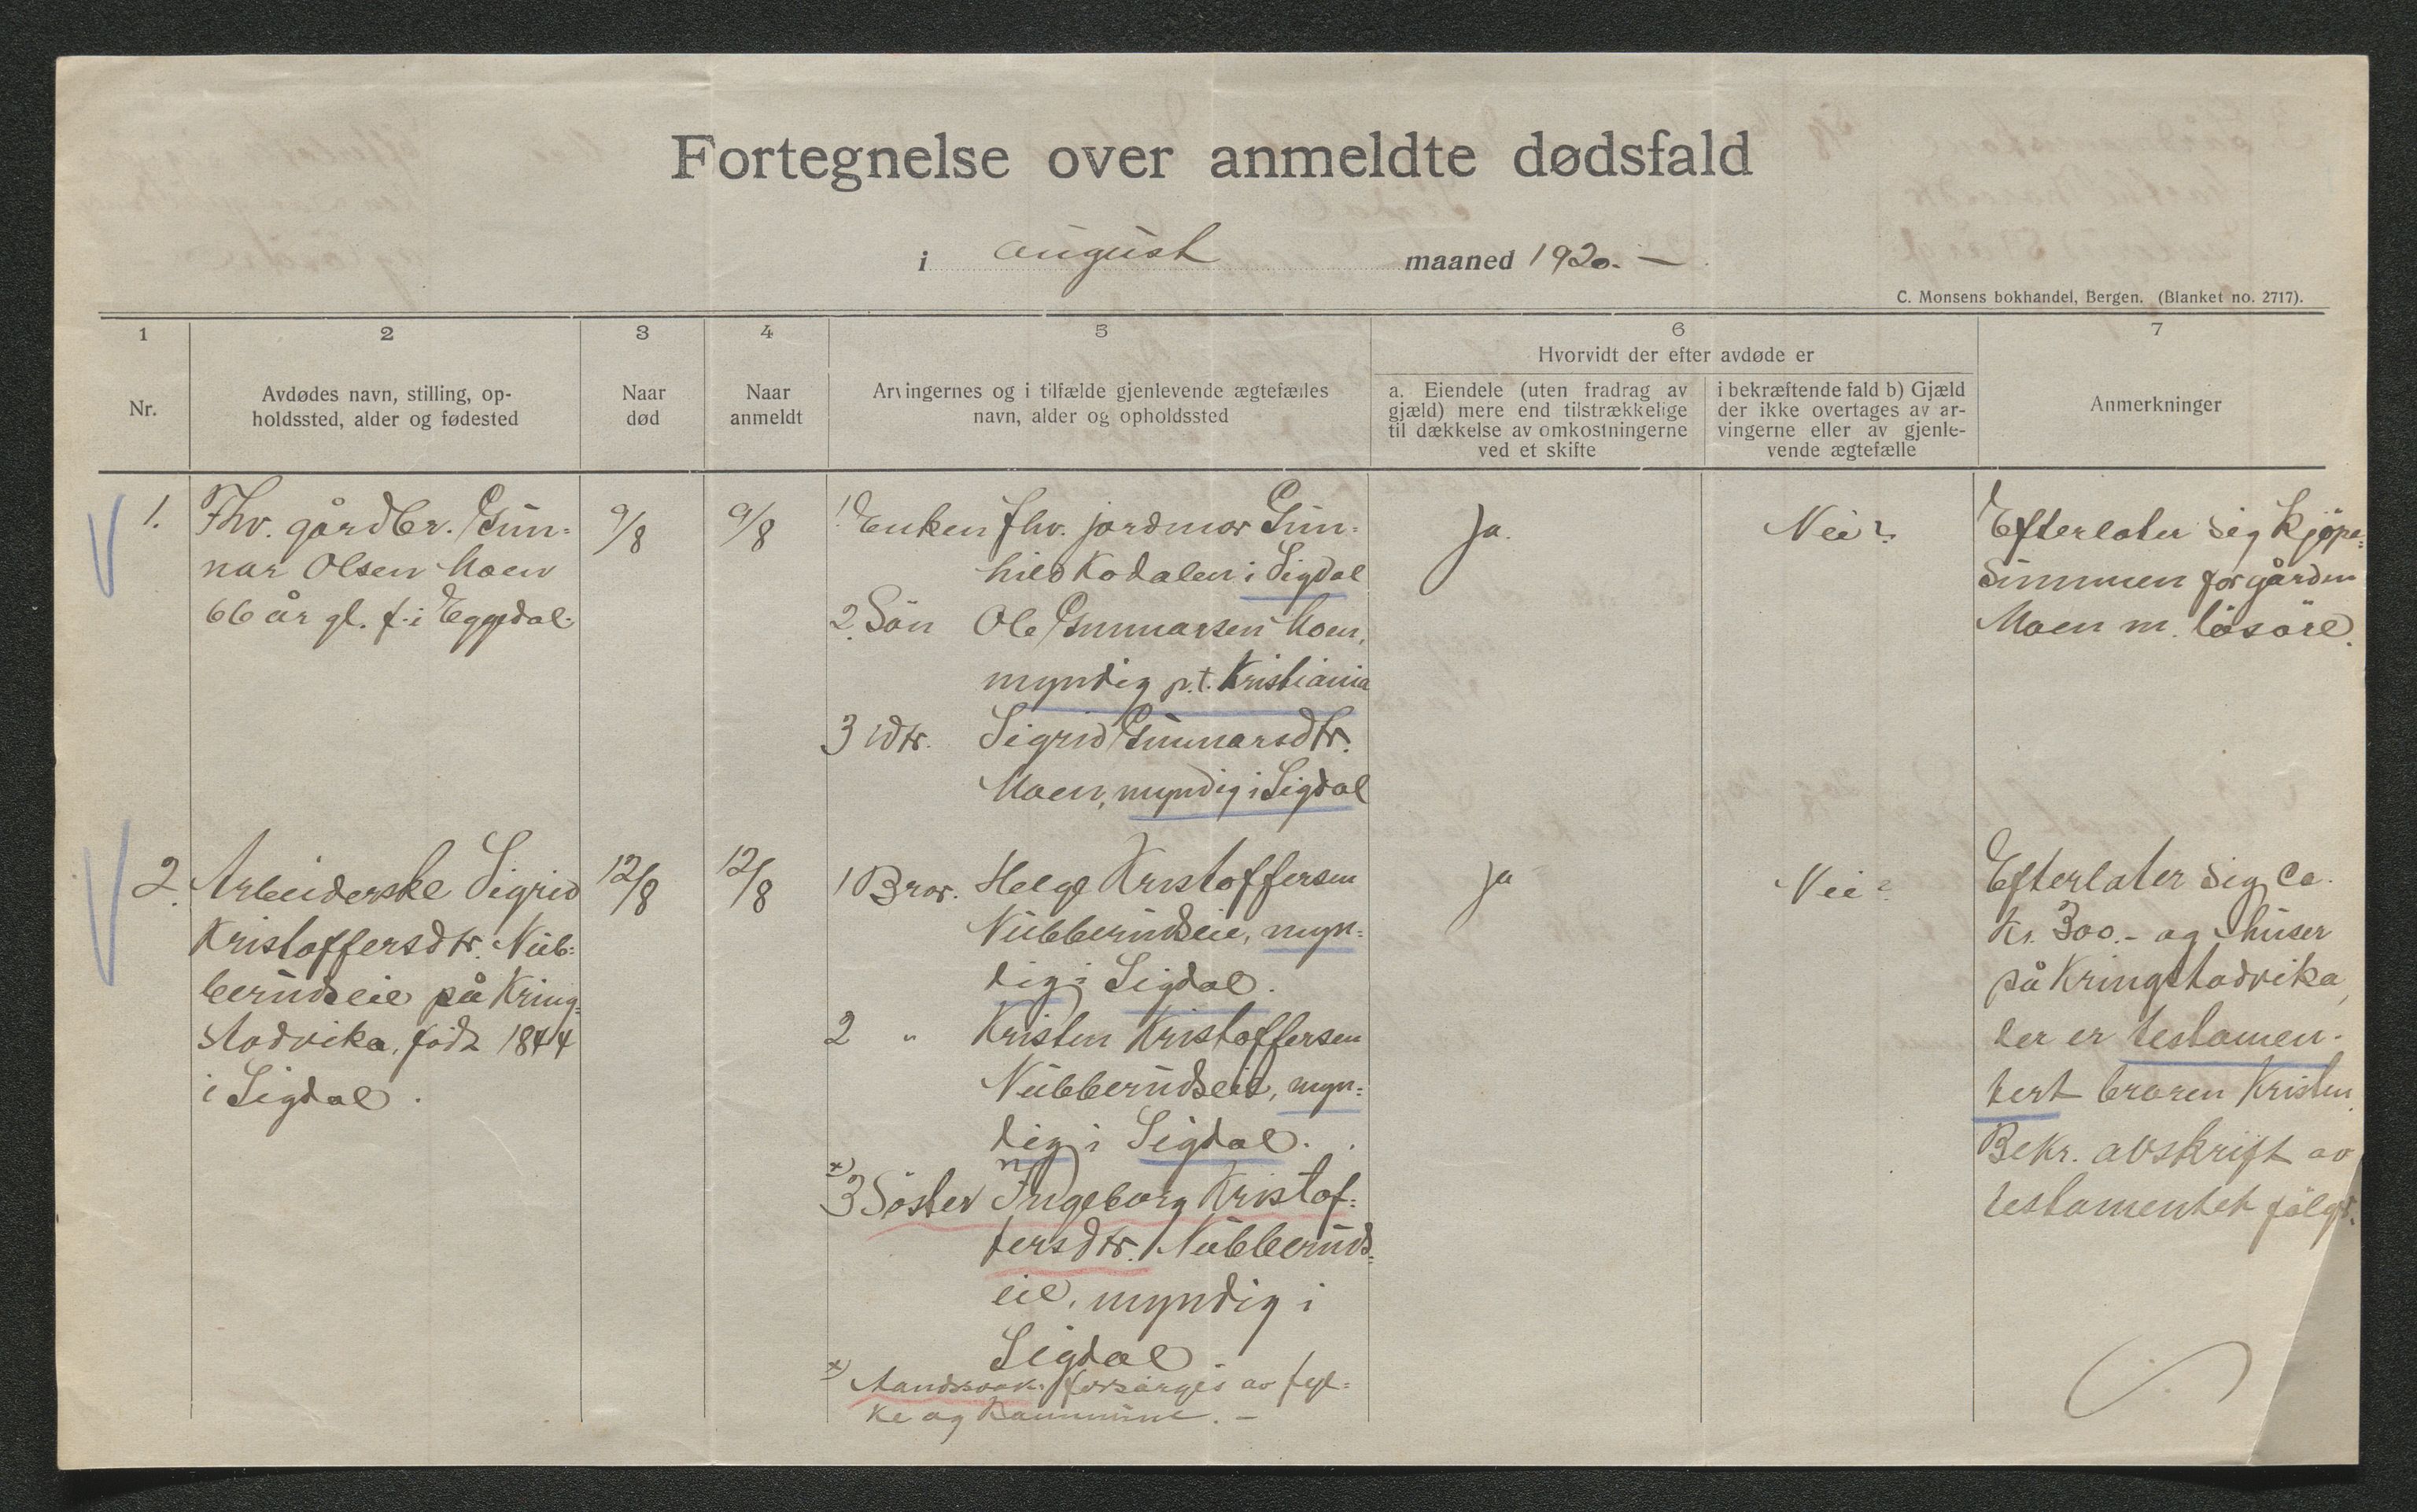 Fortegnelse over anmeldte dødsfald
i august maaned 1920. —
C. Monsens bokhandel, Bergen. (Blanket no. 2717).
1
2
3
4
5
6
7
Nr.
Avdødes navn, stilling, op-
holdssted, alder og fødested
Naar
død
Naar
anmeldt
Arvingernes og i tilfælde gjenlevende ægtefælles
navn, alder og opholdssted
Hvorvidt der efter avdøde er
a. Eiendele (uten fradrag av
gjæld) mere end tilstrækkelige
til dækkelse av omkostningerne
ved et skifte
i bekræftende fald b) Gjæld
der ikke overtages av ar-
vingerne eller av gjenle-
vende ægtefælle
Anmerkninger
1.
Fhv. gårdbr. Gun-
nar Olsen Moen
66 år gl. f. i Eggedal.
9/8
9/8
1) Enken fhv. jordmor Gun-
hild Kodalen i Sigdal
2. Søn Ole Gunnarsen Moen,
myndig p.t. Kristiania
3 Dtr. Sigrid Gunnarsdtr.
Moen, myndig i Sigdal
Ja.
Nei?
Efterlater sig kjøpe-
summen for gården
Moen m. løsøre.
2.
Arbeiderske Sigrid
Kristoffersdtr. Nub-
berudseie på Kring-
stadvika, født 1844
i Sigdal.
12/8
12/8
1 Bror. Helge Kristoffersen
Nubberudseie, myn-
dig i Sigdal.
2 " Kristen Kristoffersen
Nubberudseie, myn-
dig i Sigdal.
x) 3 Søster Ingeborg Kristof-
fersdtr. Nubberuds-
eie, myndig i
Sigdal
x) Aandssvak. forsørges av fyl-
ke og kommune. —
ja
Nei?
Efterlater sig ca.
kr. 300.- og huser
på Kringstadvika,
der er testamen-
tert broren Kristen.
Bekr. avskrift av
testamentet følger.